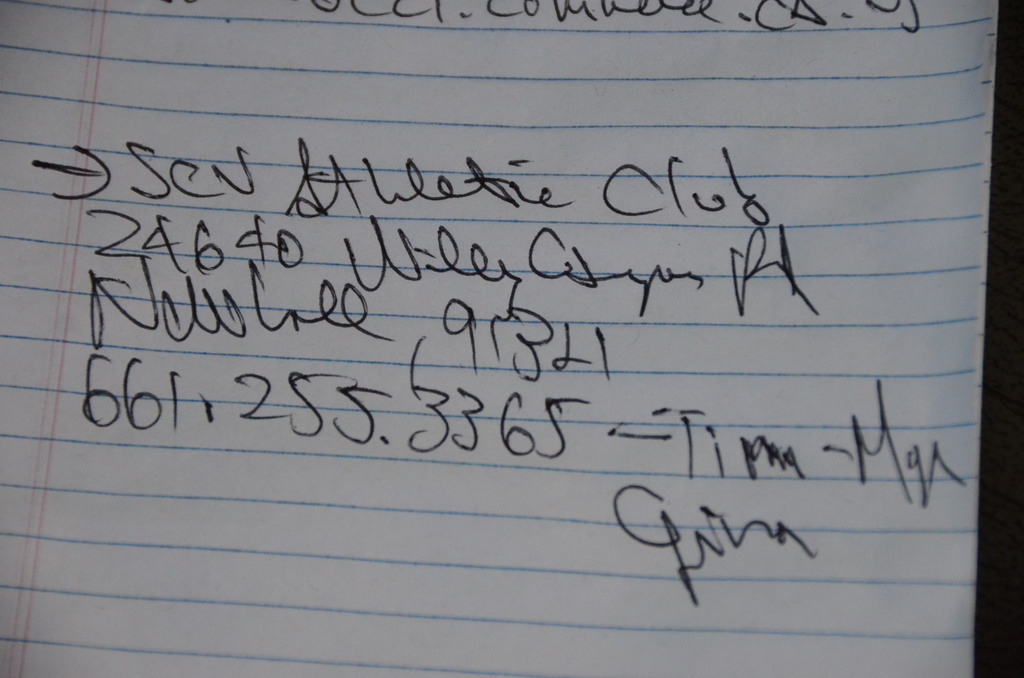 occl.commerce.ca.us
→ SCV Athletic Club
24640 Wiley Canyon Rd
Newhall 91321
661.255.3365 - Tina - Mgr
Gina